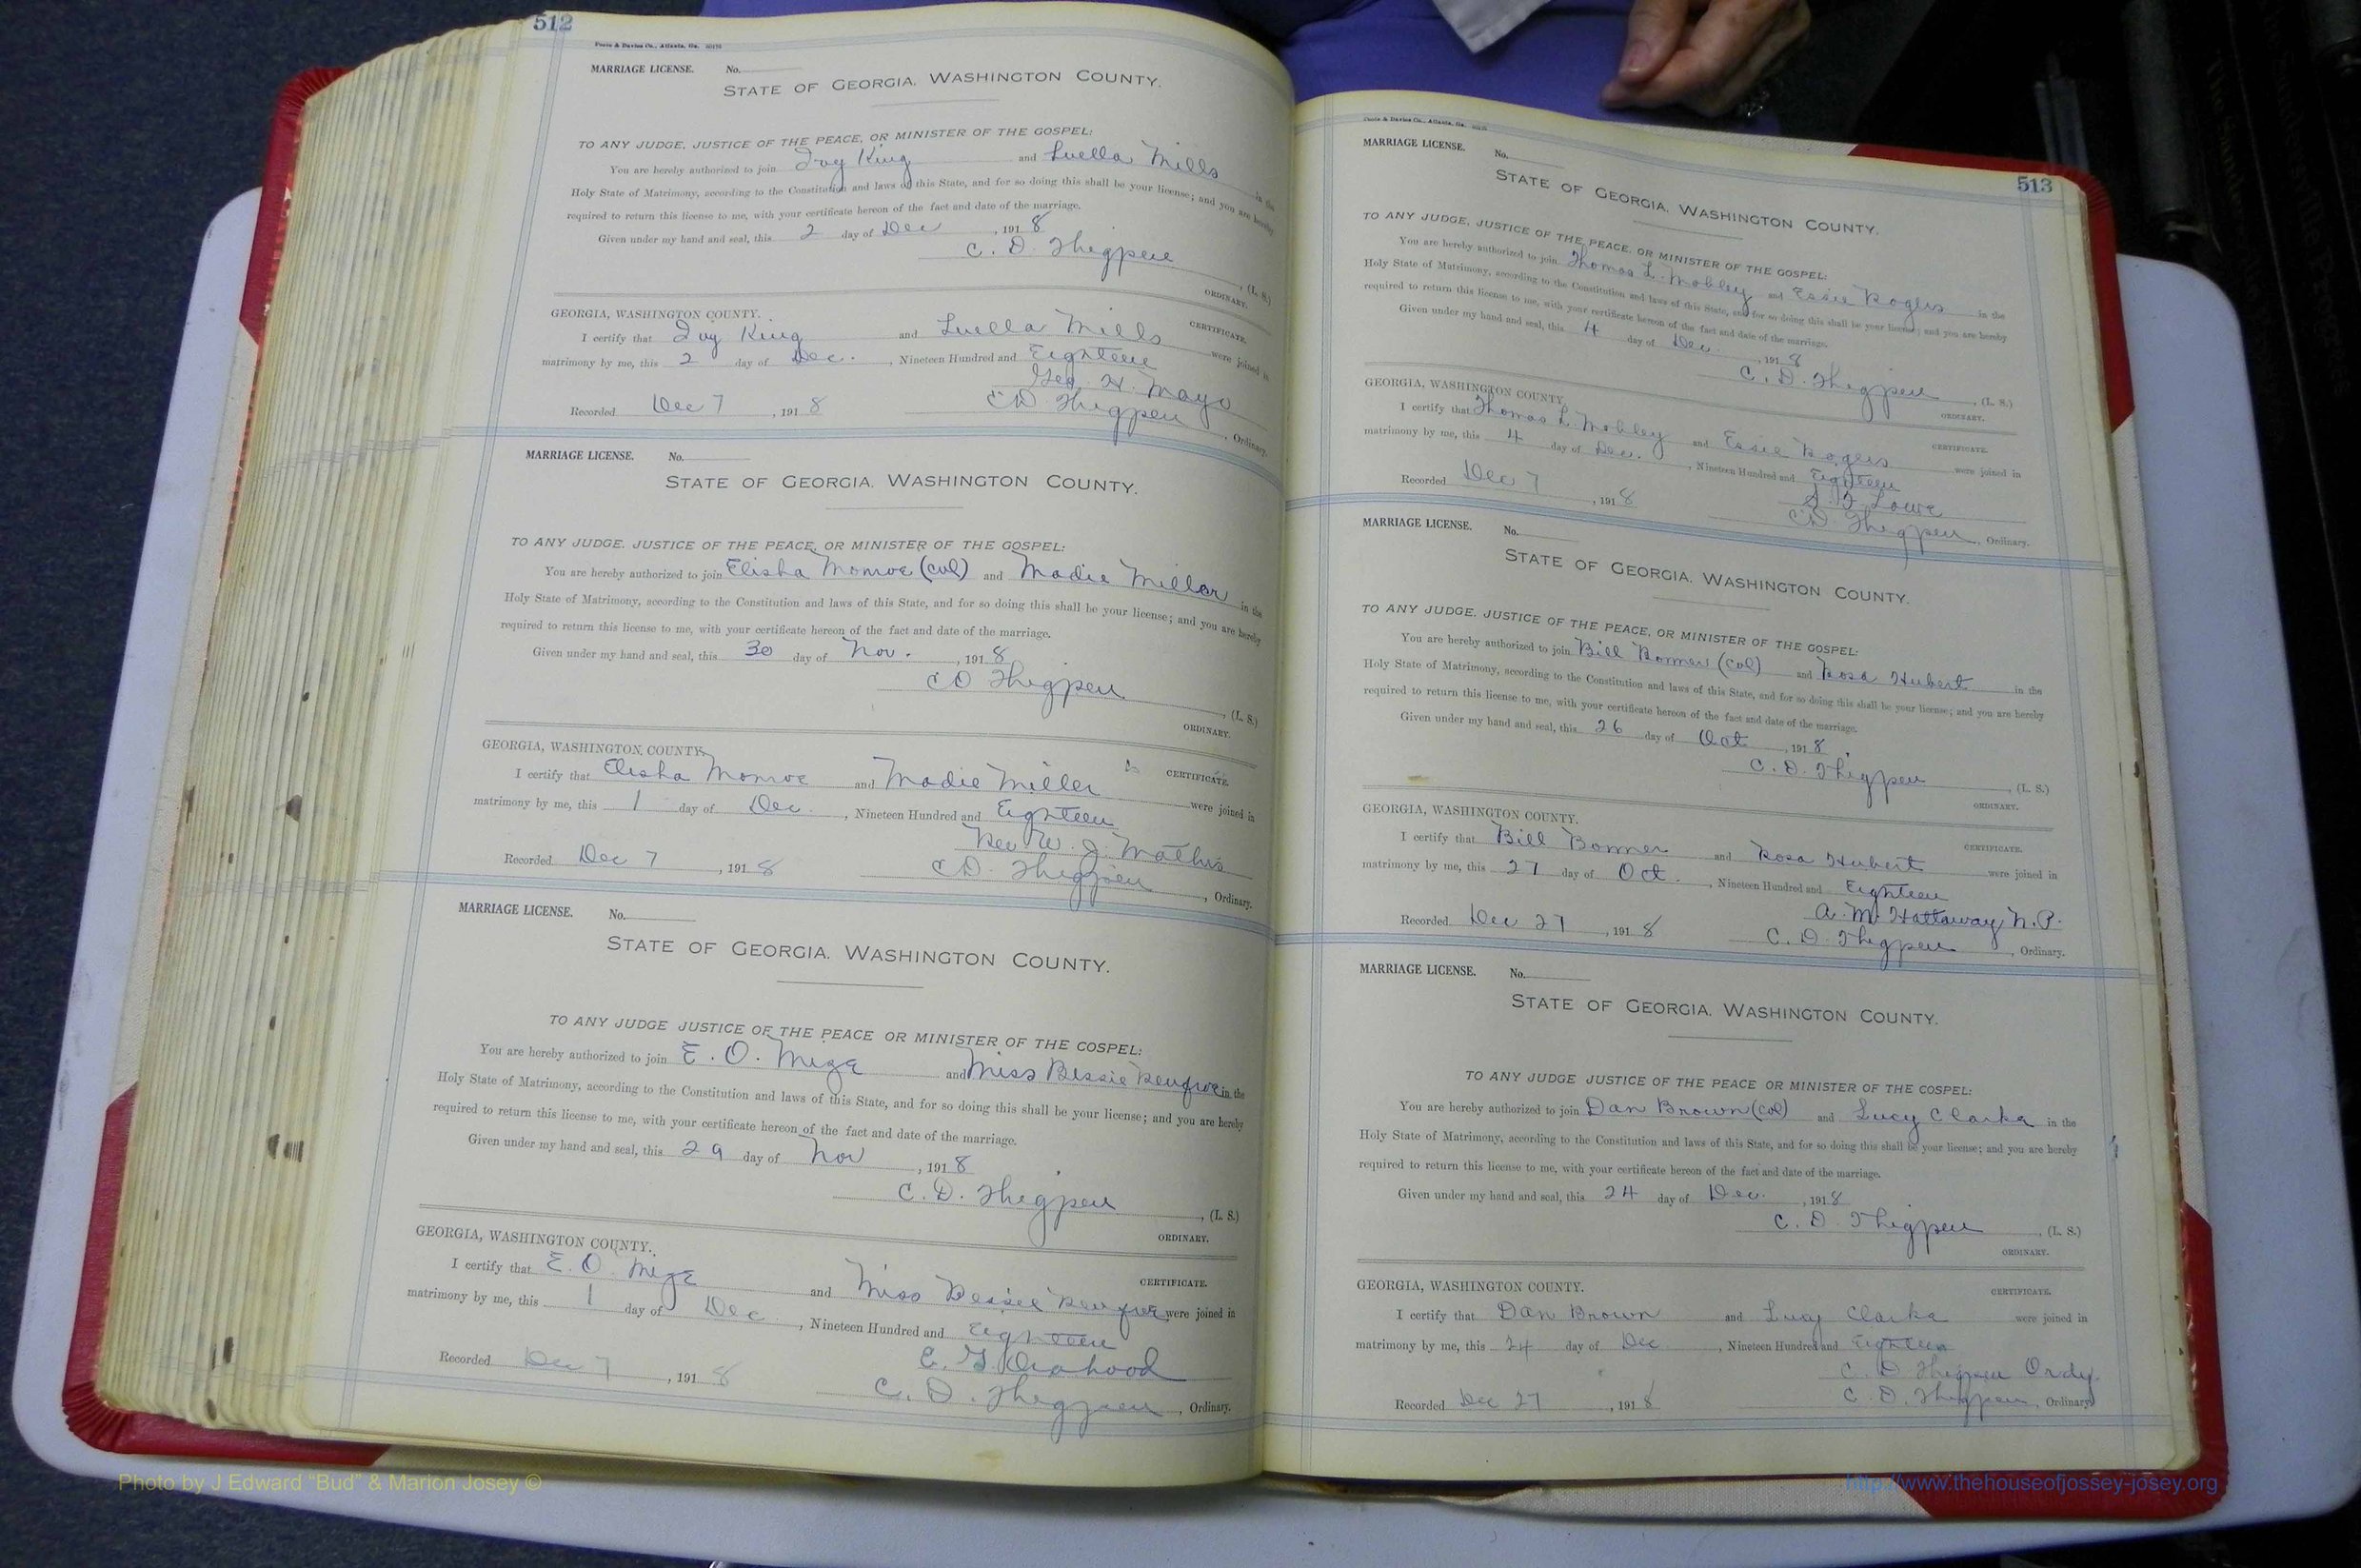 512
MARRIAGE LICENSE. No.
STATE OF GEORGIA, WASHINGTON COUNTY.
TO ANY JUDGE, JUSTICE OF THE PEACE, OR MINISTER OF THE GOSPEL:
You are hereby authorized to join King and Luella Mills in the
Holy State of Matrimony, according to the Constitution and laws of this State, and for so doing this shall be your license; and you are hereby
required to return this license to me, with your certificate hereon of the fact and date of the marriage.
Given under my hand and seal, this 2 day of Dec, 1918
C. D. Thigpen, (L. S.)
ORDINARY.
GEORGIA, WASHINGTON COUNTY. CERTIFICATE.
I certify that King and Luella Mills were joined in
matrimony by me, this 2 day of Dec., Nineteen Hundred and Eighteen
Geo. H. Mayo
Recorded Dec 7, 1918 CD Thigpen, Ordinary.
MARRIAGE LICENSE. No.
STATE OF GEORGIA, WASHINGTON COUNTY.
TO ANY JUDGE, JUSTICE OF THE PEACE, OR MINISTER OF THE GOSPEL:
You are hereby authorized to join Elisha Monroe (col) and Madie Miller in the
Holy State of Matrimony, according to the Constitution and laws of this State, and for so doing this shall be your license; and you are hereby
required to return this license to me, with your certificate hereon of the fact and date of the marriage.
Given under my hand and seal, this 30 day of Nov., 1918
CD Thigpen, (L. S.)
ORDINARY.
GEORGIA, WASHINGTON COUNTY. CERTIFICATE.
I certify that Elisha Monroe and Madie Miller were joined in
matrimony by me, this 1 day of Dec., Nineteen Hundred and Eighteen
Rev W. J. Mathis
Recorded Dec 7, 1918 CD. Thigpen, Ordinary.
MARRIAGE LICENSE. No.
STATE OF GEORGIA, WASHINGTON COUNTY.
TO ANY JUDGE JUSTICE OF THE PEACE OR MINISTER OF THE COSPEL:
You are hereby authorized to join E. O. Mize and Miss Bessie Renfroe in the
Holy State of Matrimony, according to the Constitution and laws of this State, and for so doing this shall be your license; and you are hereby
required to return this license to me, with your certificate hereon of the fact and date of the marriage.
Given under my hand and seal, this 29 day of Nov, 1918
C. D. Thigpen, (L. S.)
ORDINARY.
GEORGIA, WASHINGTON COUNTY. CERTIFICATE.
I certify that E. O. Mize and Miss Bessie Renfroe were joined in
matrimony by me, this 1 day of Dec, Nineteen Hundred and Eighteen
E. G.
Recorded Dec 7, 1918 C. D. Thigpen, Ordinary.
513
MARRIAGE LICENSE. No.
STATE OF GEORGIA, WASHINGTON COUNTY.
TO ANY JUDGE, JUSTICE OF THE PEACE, OR MINISTER OF THE GOSPEL:
You are hereby authorized to join Thomas L. Mobley and Essie Rogers in the
Holy State of Matrimony, according to the Constitution and laws of this State, and for so doing this shall be your license; and you are hereby
required to return this license to me, with your certificate hereon of the fact and date of the marriage.
Given under my hand and seal, this 4 day of Dec., 1918
C. D. Thigpen, (L. S.)
ORDINARY.
GEORGIA, WASHINGTON COUNTY. CERTIFICATE.
I certify that Thomas L. Mobley and Essie Rogers were joined in
matrimony by me, this 4 day of Dec., Nineteen Hundred and Eighteen
Lowe
Recorded Dec 7, 1918 CD. Thigpen, Ordinary.
MARRIAGE LICENSE. No.
STATE OF GEORGIA, WASHINGTON COUNTY.
TO ANY JUDGE, JUSTICE OF THE PEACE, OR MINISTER OF THE GOSPEL:
You are hereby authorized to join Bill Bonner (col) and Rosa Hubert in the
Holy State of Matrimony, according to the Constitution and laws of this State, and for so doing this shall be your license; and you are hereby
required to return this license to me, with your certificate hereon of the fact and date of the marriage.
Given under my hand and seal, this 26 day of Oct, 1918
C. D. Thigpen, (L. S.)
ORDINARY.
GEORGIA, WASHINGTON COUNTY. CERTIFICATE.
I certify that Bill Bonner and Rosa Hubert were joined in
matrimony by me, this 27 day of Oct., Nineteen Hundred and Eighteen
A. M. Hattaway N.P.
Recorded Dec 27, 1918 C. D. Thigpen, Ordinary.
MARRIAGE LICENSE. No.
STATE OF GEORGIA, WASHINGTON COUNTY.
TO ANY JUDGE JUSTICE OF THE PEACE OR MINISTER OF THE COSPEL:
You are hereby authorized to join Dan Brown (col) and Lucy Clarke in the
Holy State of Matrimony, according to the Constitution and laws of this State, and for so doing this shall be your license; and you are hereby
required to return this license to me, with your certificate hereon of the fact and date of the marriage.
Given under my hand and seal, this 24 day of Dec., 1918
C. D. Thigpen, (L. S.)
ORDINARY.
GEORGIA, WASHINGTON COUNTY. CERTIFICATE.
I certify that Dan Brown and Lucy Clarke were joined in
matrimony by me, this 24 day of Dec, Nineteen Hundred and Eighteen
C. D. Thigpen Ordy.
Recorded Dec 27, 1918 C. D. Thigpen, Ordinary
Photo by J Edward "Bud" & Marion Josey ©
http://www.thehouseofjossey-josey.org